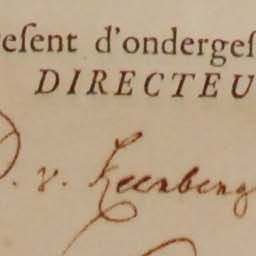 resent d'onderges
DIRECTEU
. v. Keerberg